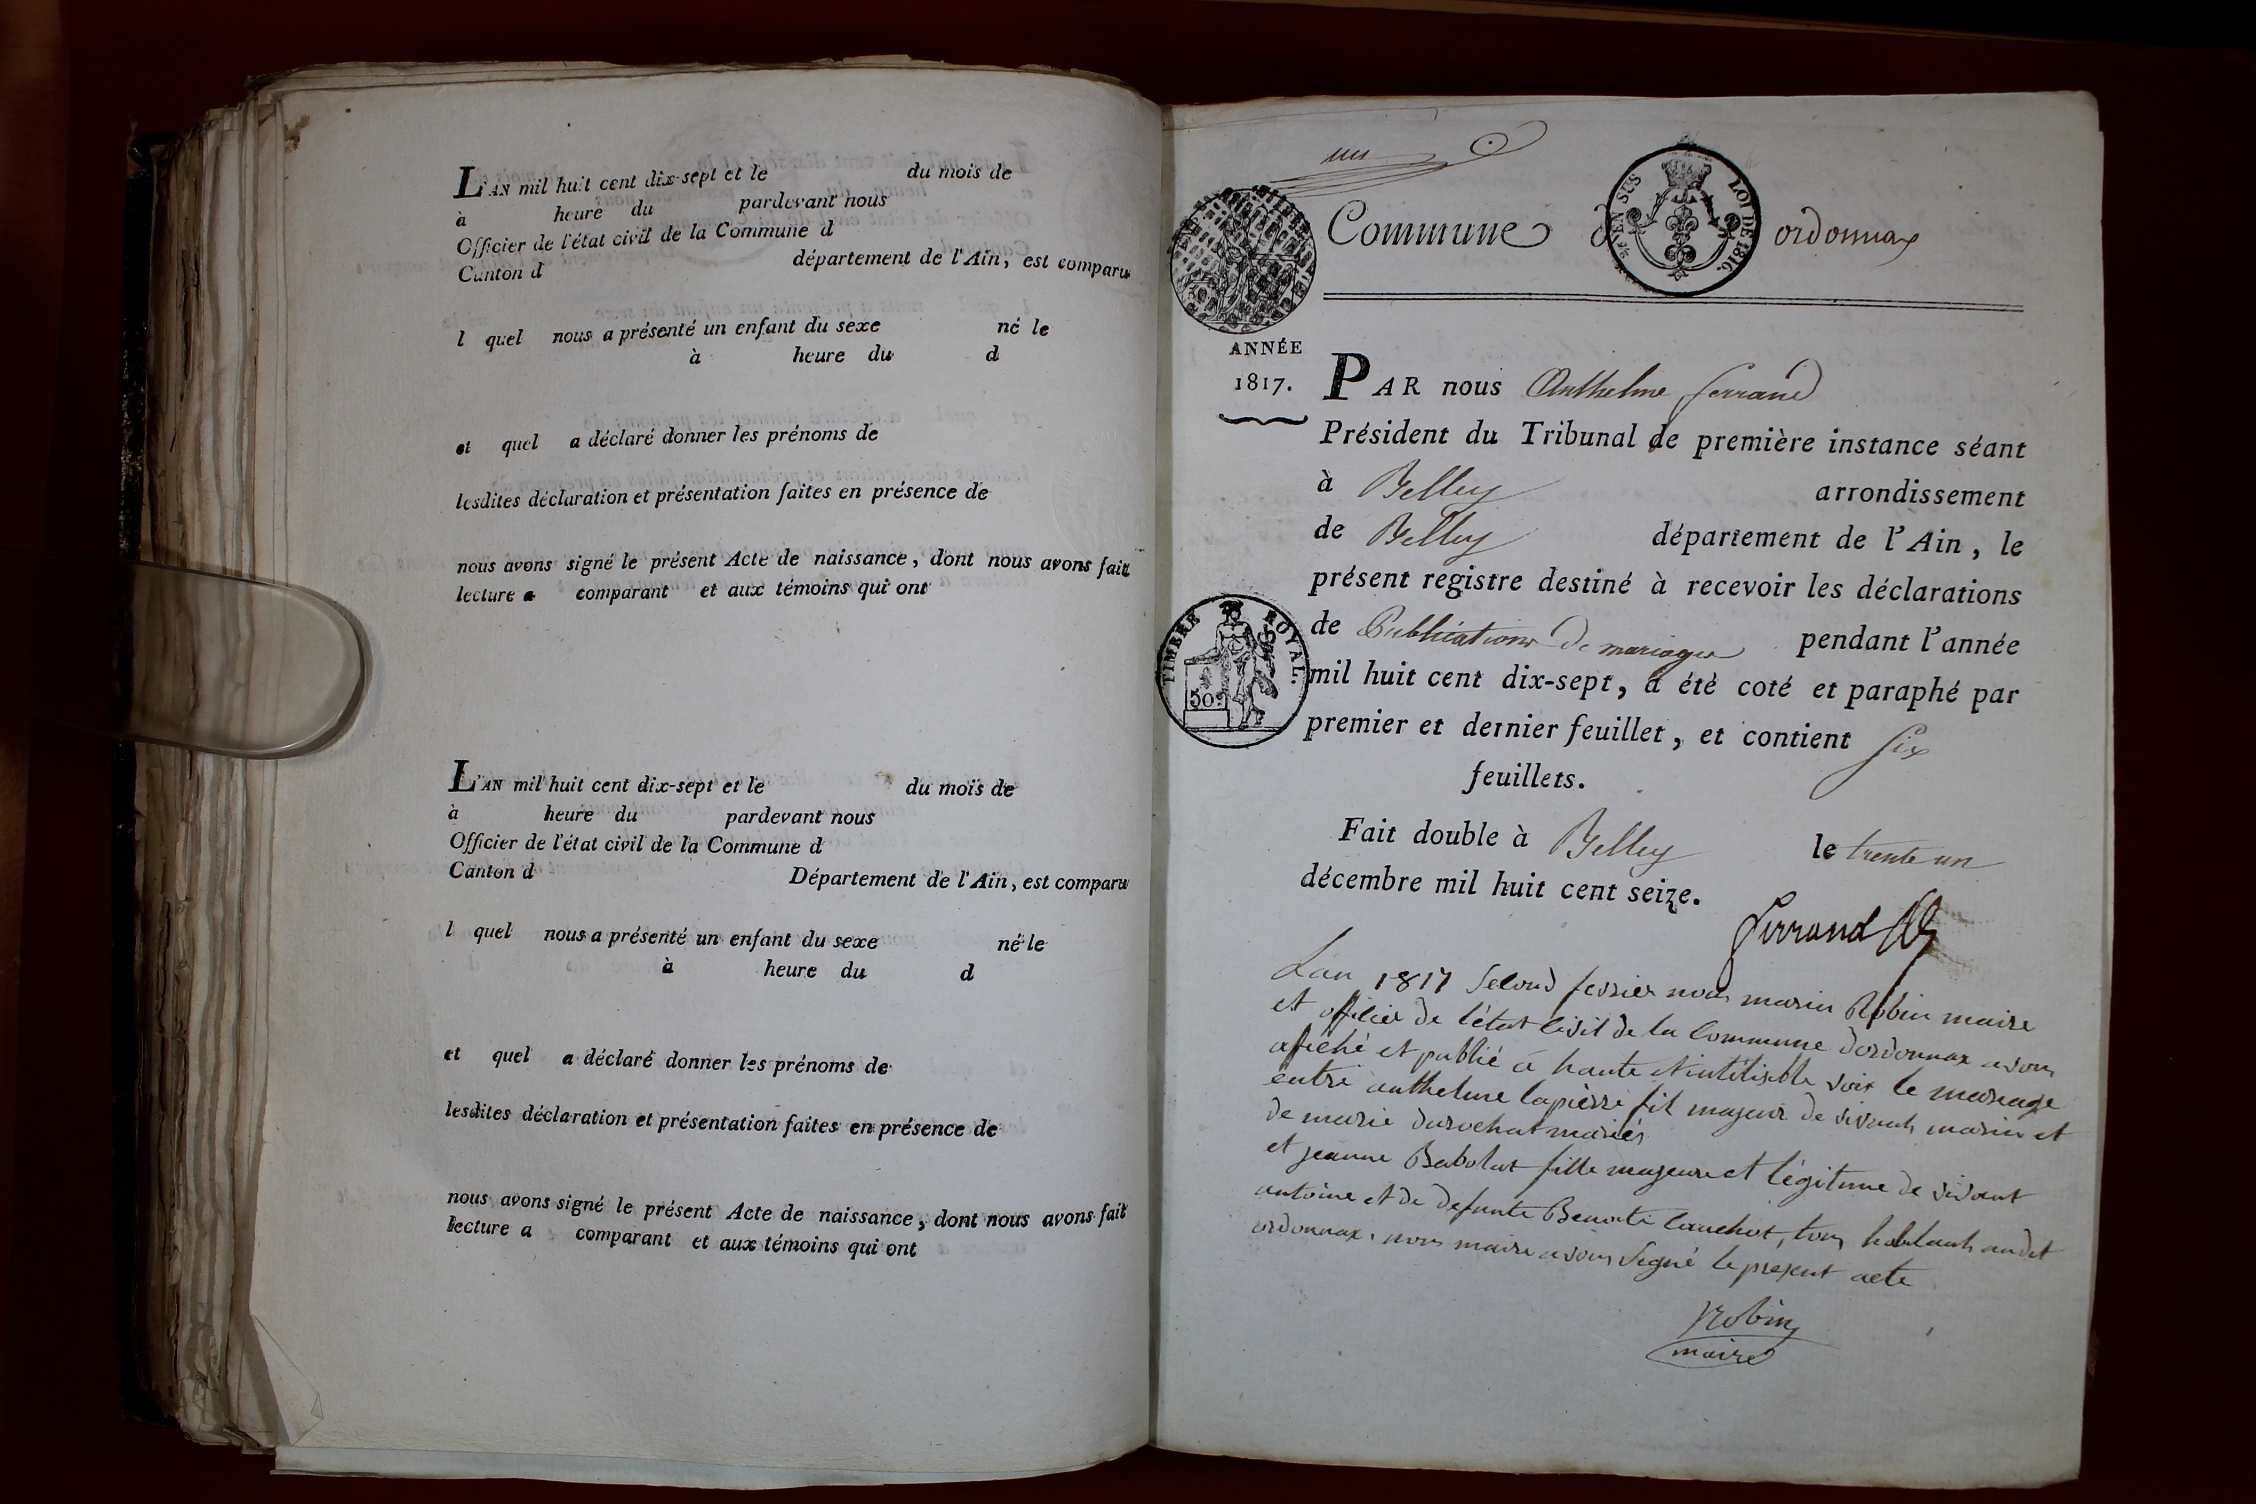 L'AN mil huit cent dix-sept et le du mois de
à heure du pardevant nous
Officier de l'état civil de la Commune d
Canton d département de l'Ain, est comparu
l quel nous a présenté un enfant du sexe né le
à heure du d
et quel a déclaré donner les prénoms de
lesdites déclaration et présentation faites en présence de
nous avons signé le présent Acte de naissance, dont nous avons fait
lecture a comparant et aux témoins qui ont
L'AN mil huit cent dix-sept et le du mois de
à heure du pardevant nous
Officier de l'état civil de la Commune d
Canton d Département de l'Ain, est comparu
l quel nous a présenté un enfant du sexe né le
à heure du d
et quel a déclaré donner les prénoms de
lesdites déclaration et présentation faites en présence de
nous avons signé le présent Acte de naissance, dont nous avons fait
lecture a comparant et aux témoins qui ont
un
EN SUS LOI DE 1816.
Commune d ordonnax
ANNÉE
1817.
PAR nous Anthelme ferrand
Président du Tribunal de première instance séant
à Belley arrondissement
de Belley département de l'Ain, le
présent registre destiné à recevoir les déclarations
de Publications de mariages pendant l'année
TIMBRE ROYAL.
50c
mil huit cent dix-sept, a été coté et paraphé par
premier et dernier feuillet, et contient six
feuillets.
Fait double à Belley le trente un
décembre mil huit cent seize.
Ferrand
L'an 1817 second fevrier nous marin Robin maire
et officier de l'état civil de la Commune d'ordonnax avons
afiché et publié à haute et intéligible voix le mariage
entre anthelme lapierre fil majeur de vivants marin et
de marie durochat mariés
et jeanne Babolat fille majeure et légitime de vivant
antoine et de defunte Benoite cauchot, tous habitants audit
ordonnax, nous maire avons signé le present acte
Robin
maire